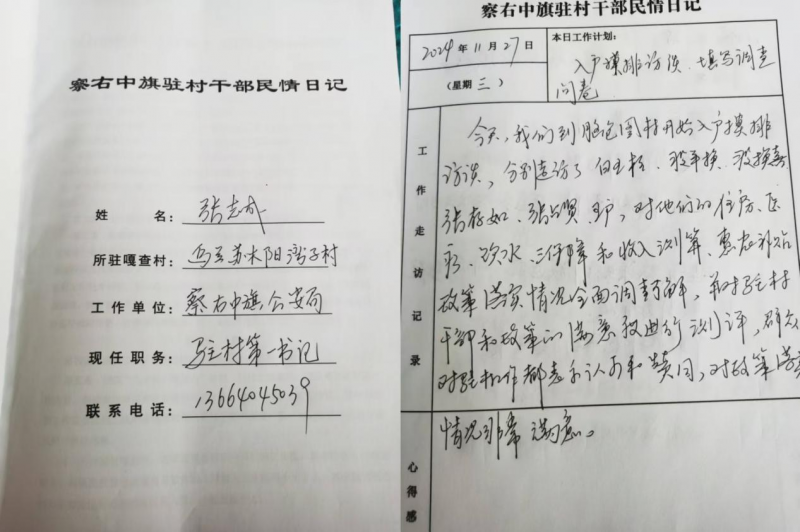 察右中旗驻村干部民情日记
姓 名: 张志成
所驻嘎查村: 乌兰苏木阳湾子村
工作单位: 察右中旗公安局
现任职务: 驻村第一书记
联系电话: 13664045039
察右中旗驻村干部民情日记
2024年11月27日
(星期三)
本日工作计划:
入户摸排访谈、填写调查
问卷
工作走访记录
今天,我们到脑包图村开始入户摸排
访谈,分别走访了
张存如、张 户,对他们的住房、医
疗、饮水、三保障和收入测算、惠农补贴
政策落实情况全面调查了解,并对驻村
干部和政策的满意度进行测评,群众
对驻村工作都表示认可和赞同,对政策落实
情况非常满意。
心得感